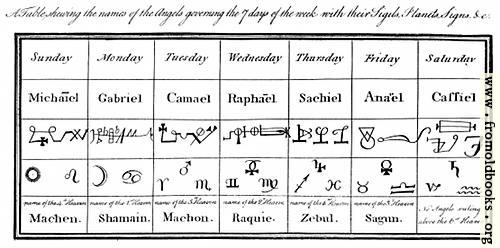 A Table shewing the names of the Angels governing the 7 days of the week with their Sigils, Planets, Signs, &c.
Sunday Monday Tuesday Wednesday Thursday Friday Saturday
Michaïel Gabriel Camael Raphaël Sachiel Anaël Caffiel
☉ ♌ ☽ ♋ ♂ ♈ ♏ ☿ ♊ ♍ ♃ ♐ ♓ ♀ ♉ ♎ ♄ ♑ ♒
name of the 4th Heaven name of the 1st Heaven name of the 5th Heaven name of the 2d Heaven name of the 6th Heaven name of the 3d Heaven No Angels ruling
Machen. Shamain. Machon. Raquie. Zebul. Sagun. above the 6th Heaven
www.fromoldbooks.org